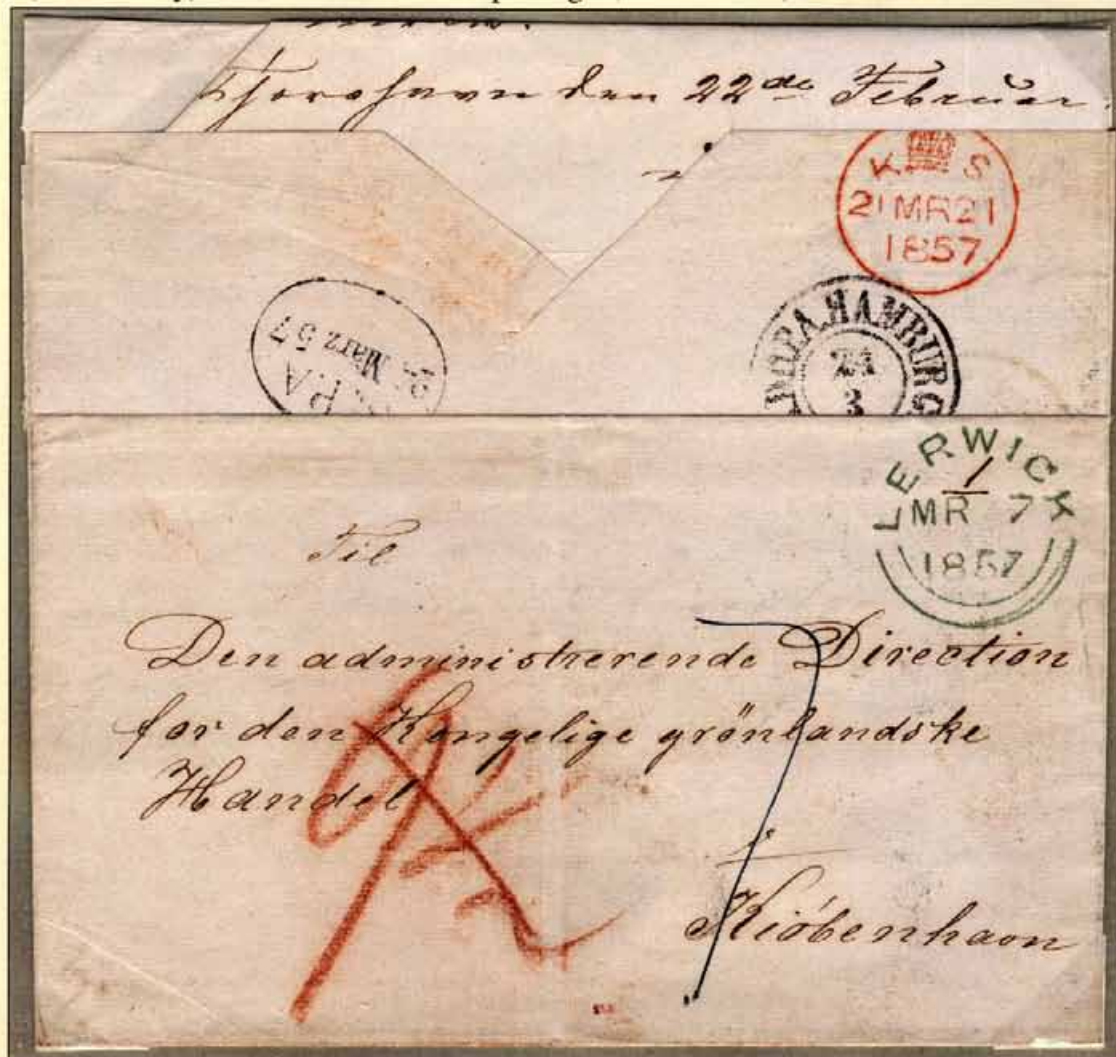 Thorshavn den 22de Februar
K S
21 MR 21
1857
März 57
P.A
D.O.P.A. HAMBURG
24
3
LERWICK
1
MR 7
1857
Til
Den administrerende Direction
for den Kongelige grönlandske
Handel
i
Kiöbenhavn
7